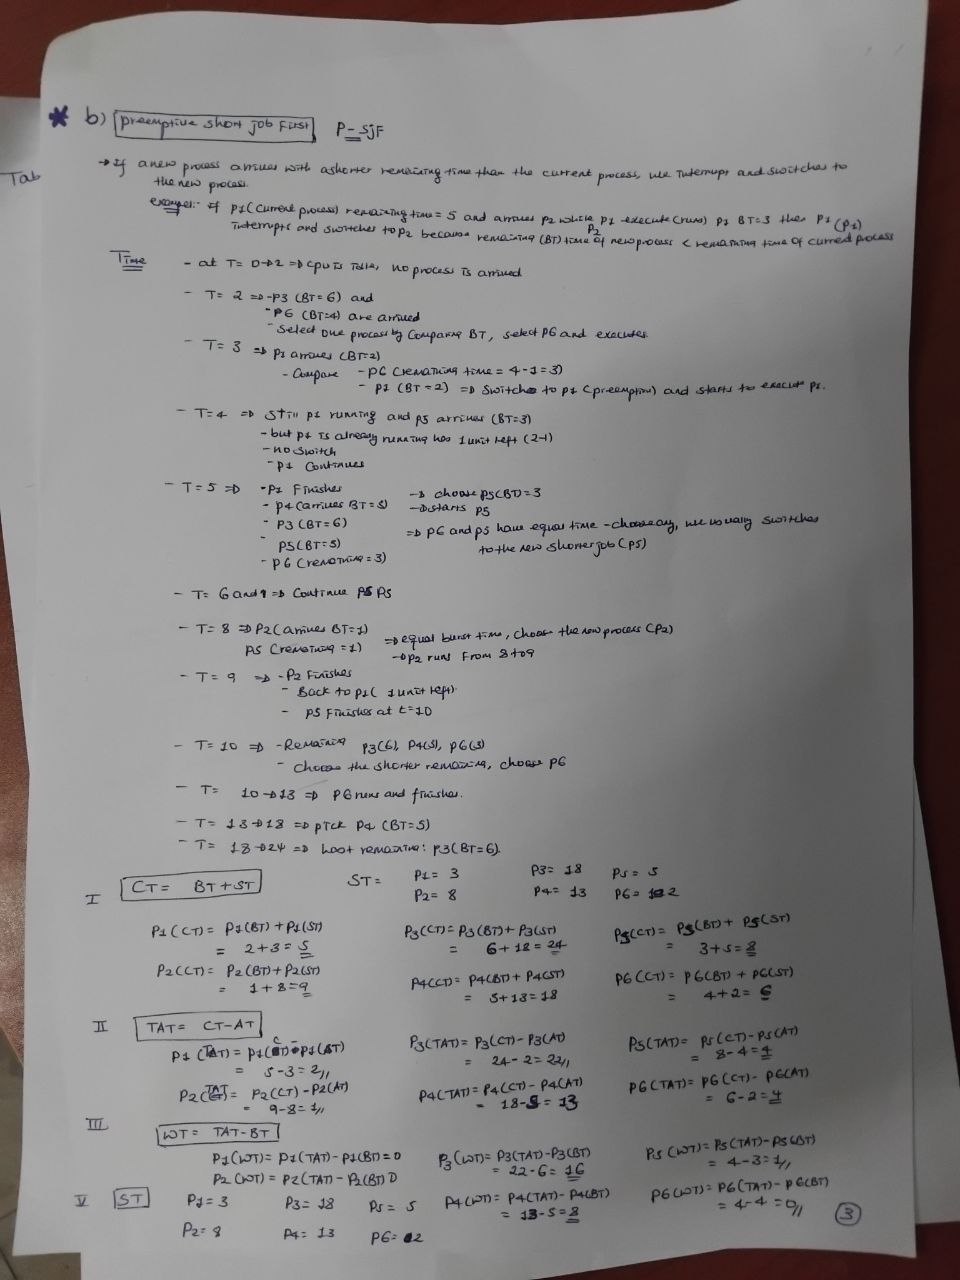 Tab
* b) preemptive short job first P-SJF
→ If a new process arrives with a shorter remaining time than the current process, we interrupt and switches to
the new process.
example:- if p1 (current process) remaining time = 5 and arrives p2 while p1 execute (runs) p2 BT=3 then p1 (P1)
interrupts and switches to p2 because remaining (BT) time of new process < remaining time of current process
P2
Time
- at T= 0→2 => cpu is idle, no process is arrived
- T= 2 => -p3 (BT=6) and
- P6 (BT=4) are arrived
- select one process by comparing BT, select P6 and executes.
- T= 3 => p1 arrives (BT=2)
- Compare - p6 (remaining time = 4-1=3)
- p1 (BT=2) => switches to p1 (preemption) and starts to execute p1.
- T=4 => still p1 running and p5 arrives (BT=3)
- but p1 is already running has 1 unit left (2-1)
- no switch
- p1 continues
- T=5 => -P1 Finishes → choose p5(BT)=3
- p4 (arrives BT=5) → starts P5
- P3 (BT=6)
P5(BT=3) => P6 and p5 have equal time - choose any, we usually switches
to the new shorter job (p5)
- p6 (remaining = 3)
- T= 6 and 7 => Continue P5
- T= 8 => P2 (arrives BT=1)
P5 (remaining = 1) => equal burst time, choose the new process (P2)
→ p2 runs from 8 to 9
- T= 9 => - P2 Finishes
- Back to p1 ( 1 unit left).
- p5 finishes at t=10
- T= 10 => - Remaining p3(6), P4(5), p6(3)
- Choose the shorter remaining, choose p6
- T= 10→13 => P6 runs and finishes.
- T= 13→18 => pick P4 (BT=5)
- T= 18→24 => last remaining: P3(BT=6).
I CT= BT+ST ST= P1= 3 P3= 18 P5= 5
P2= 8 P4= 13 P6= 2
P1(CT)= P1(BT)+P1(ST) P3(CT)= P3(BT)+P3(ST) P5(CT)= P5(BT)+ P5(ST)
= 2+3=5 = 6+18=24 = 3+5=8
P2(CT)= P2(BT)+P2(ST) P4(CT)= P4(BT)+P4(ST) P6(CT)= P6(BT)+P6(ST)
= 1+8=9 = 5+13=18 = 4+2=6
II TAT= CT-AT
P1(TAT)= P1(CT)-P1(AT) P3(TAT)= P3(CT)-P3(AT) P5(TAT)= P5(CT)-P5(AT)
= 5-3=2 = 24-2=22 = 8-4=4
P2(TAT)= P2(CT)-P2(AT) P4(TAT)= P4(CT)-P4(AT) P6(TAT)= P6(CT)-P6(AT)
= 9-8=1 = 18-5=13 = 6-2=4
III WT= TAT-BT
P1(WT)= P1(TAT)-P1(BT)=0 P3(WT)= P3(TAT)-P3(BT) P5(WT)= P5(TAT)-P5(BT)
= 22-6=16 = 4-3=1
P2(WT)= P2(TAT)-P2(BT) 0
V ST P1= 3 P3= 18 P5= 5 P4(WT)= P4(TAT)-P4(BT) P6(WT)= P6(TAT)-P6(BT)
= 13-5=8 = 4-4=0
P2= 8 P4= 13 P6= 2
3